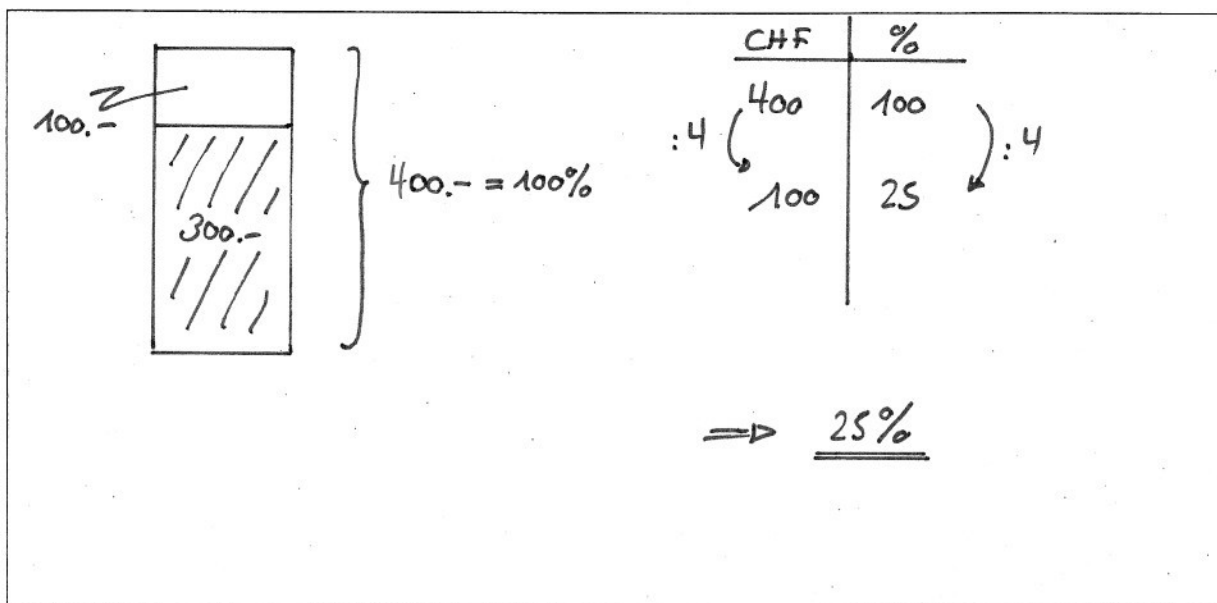 100.-
300.-
400.- = 100%
CHF %
400 100
:4 :4
100 25
⇒ 25%